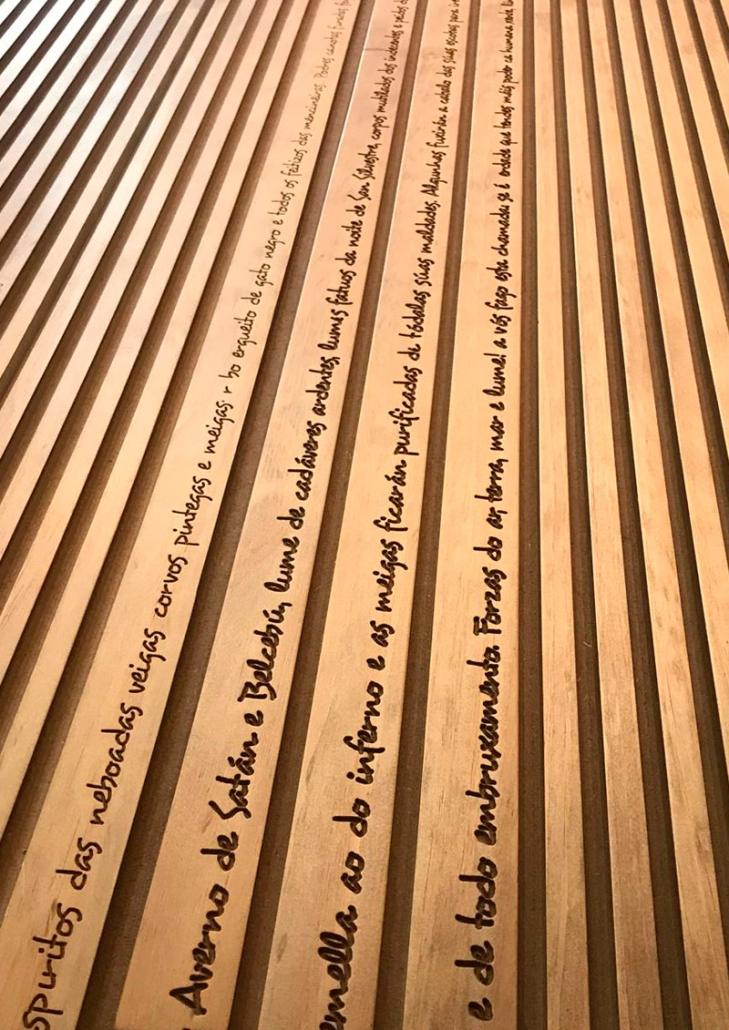 spuritos das neboadas veigas corvos pintegas e meigas r bo ergueito de gato negro e todos os feitizos das menciñeiras. Podres cañotas furadas
Averno de Satán e Belcebú, lume de cadáveres ardentes, lumes fatuos da noite de San Silvestre, corpos mutilados dos indecentes e peidos
emella ao do inferno e as meigas ficarán purificadas de tódalas súas maldades. Algunhas fuxirán a cabalo das súas escobas para
e de todo embruxamento. Forzas do ar, terra, mar e lume! a vós fago esta chamada: se é verdade que tendes máis poder ca humana